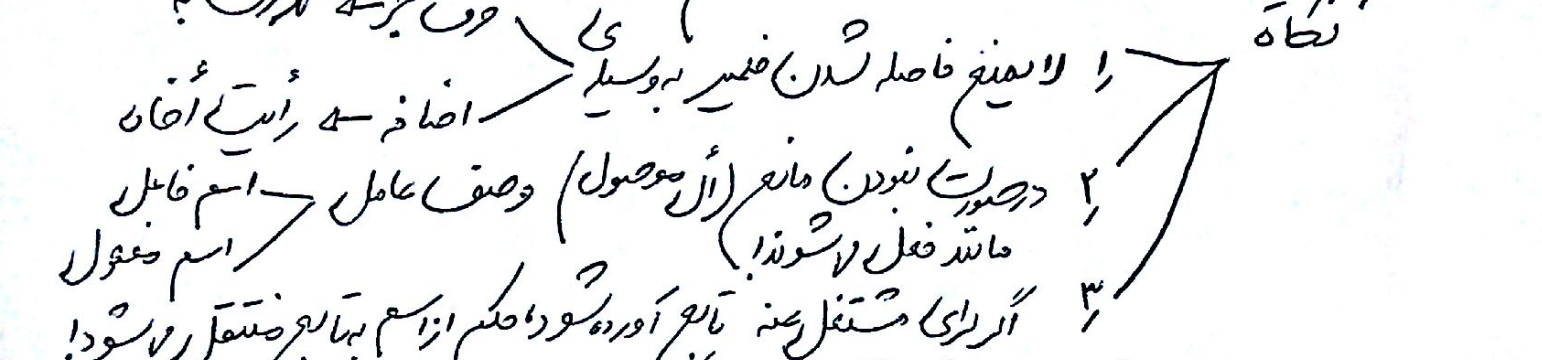 نکات
۱) لا یمنع فاصله شدن ضمیر به وسیله‌ی
حرف جر ←
اضافه ← رأیتُ أخاه
۲) در صورت نبودن مانع (أل موصول) وصف عامل
اسم فاعل
اسم مفعول
مانند فعل می‌شوند!
۳) اگر برای مشتغل عنه تابع آورده شود، حکم از اسم به تابع منتقل می‌شود!